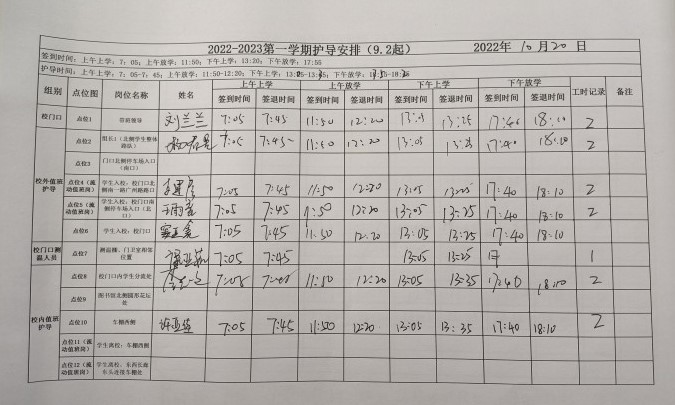 2022-2023第一学期护导安排（9.2起） 2022年10月20日
签到时间：上午上学：7：05；上午放学：11:50；下午上学：13:20；下午放学：17:55
护导时间：上午上学：7：05-7：45；上午放学：11:50-12:20；下午上学：
组别 点位图 岗位名称 姓名 上午上学 上午放学 下午上学 下午放学 工时记录 备注
签到时间 签退时间 签到时间 签退时间 签到时间 签退时间 签到时间 签退时间
校门口 点位1 值班领导 刘兰兰 7:05 7:45 11:50 12:20 13:05 13:25 17:40 18:10 2
点位2 组长：（北侧学生整体路队） 7:05 7:45 11:50 12:20 13:05 13:25 17:40 18:10 2
点位3 门口北侧停车场入口（南口）
校外值班护导
点位4（流动值班岗） 学生入校：校门口北侧南一路广州路路口 7:05 7:45 11:50 12:20 13:05 13:25 17:40 18:10 2
点位5（流动值班岗） 学生入校：校门口南侧停车场入口（北口） 7:05 7:45 11:50 12:20 13:05 13:25 17:40 18:10 2
点位6 学生入校：校门口 7:05 7:45 11:50 12:20 13:05 13:25 17:40 18:10
校门口测温人员 点位7 测温棚，门卫室和邻位置 7:05 7:45 13:05 13:25 17 1
点位8 校门口内学生分流处 7:05 7:45 11:50 12:20 13:05 13:35 17:40 18:10 2
点位9 图书馆北侧圆形花坛处
校内值班护导
点位10 车棚西侧 7:05 7:45 11:50 12:20 13:05 13:35 17:40 18:10 2
点位11（流动值班岗） 学生离校：车棚西侧
点位12（流动值班岗） 学生离校：东西长廊东头连接车棚处